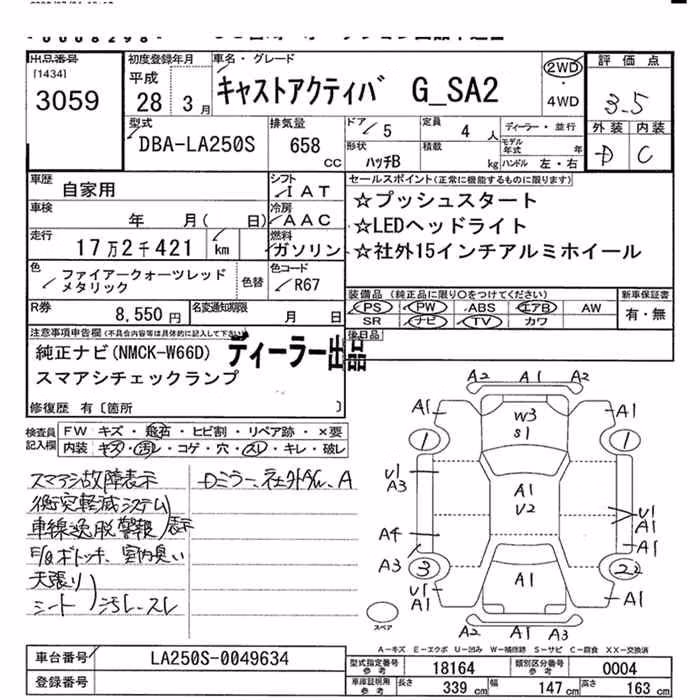 出品番号
[1434]
3059
初度登録年月
平成
28 3月
車名・グレード
キャストアクティバ G_SA2
2WD
・
4WD
評価点
3.5
外装 内装
D C
型式
DBA-LA250S
排気量
658
CC
ドア
5
定員
4 人
形状
ハッチB
積載
kg
ディーラー・並行
モデル年式 年
ハンドル 左・右
車歴
自家用
シフト
IAT
車検
年 月( 日)
冷房
AAC
走行
17万2千421 km
燃料
ガソリン
色
ファイアークォーツレッド
メタリック
色替
色コード
R67
R券
8,550円
名変通知期限
月 日
セールスポイント(正常に機能するものに限ります)
☆プッシュスタート
☆LEDヘッドライト
☆社外15インチアルミホイール
装備品(純正品に限り○をつけてください)
PS PW ABS エアB AW
SR ナビ TV カワ
新車保証書
有・無
後日品
注意事項申告欄(不具合内容等は具体的に記入して下さい)
純正ナビ(NMCK-W66D)
スマアシチェックランプ
ディーラー出品
修復歴 有〔箇所 〕
検査員
記入欄
FW キズ・飛石・ヒビ割・リペア跡・×要
内装 キズ・汚レ・コゲ・穴・スレ・キレ・破レ
スマアシ故障表示
衝突軽減システム
車線逸脱警報
表示
室内臭い
天張り
シート
汚レ、スレ
Dミラー、社外
A2 A1 A2
A1 A1
W3
S1
1 1
U1
A3
A1
U2
U1
A1
A4
A1
A3
3
A1
U1
A1
A1
A2 A1 A3
スペア
A-キズ E-エクボ U-凹み W-補修跡 S-サビ C-腐食 XX-交換済
車台番号
LA250S-0049634
登録番号
型式指定番号
参考
18164
類別区分番号
参考
0004
車庫証明用
参考
長さ 339 cm 幅 147 cm 高さ 163 cm